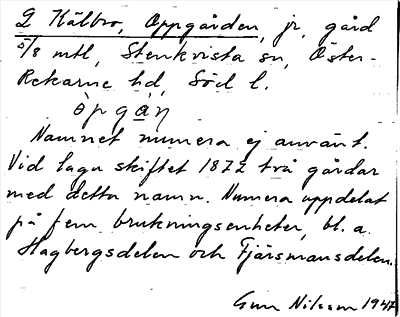 2 Kälbro, Oppgården, jr. gård
5/8 mtl, Stenkvista sn, Öster-
Rekarne hd, Söd l.
òpgàṇ
Namnet numera ej använt.
Vid laga skiftet 1872 två gårdar
med detta namn. Numera uppdelat
på fem brukningsenheter, bl. a.
Hagbergsdelen och Fjärsmansdelen.
Gun Nilsson 1947